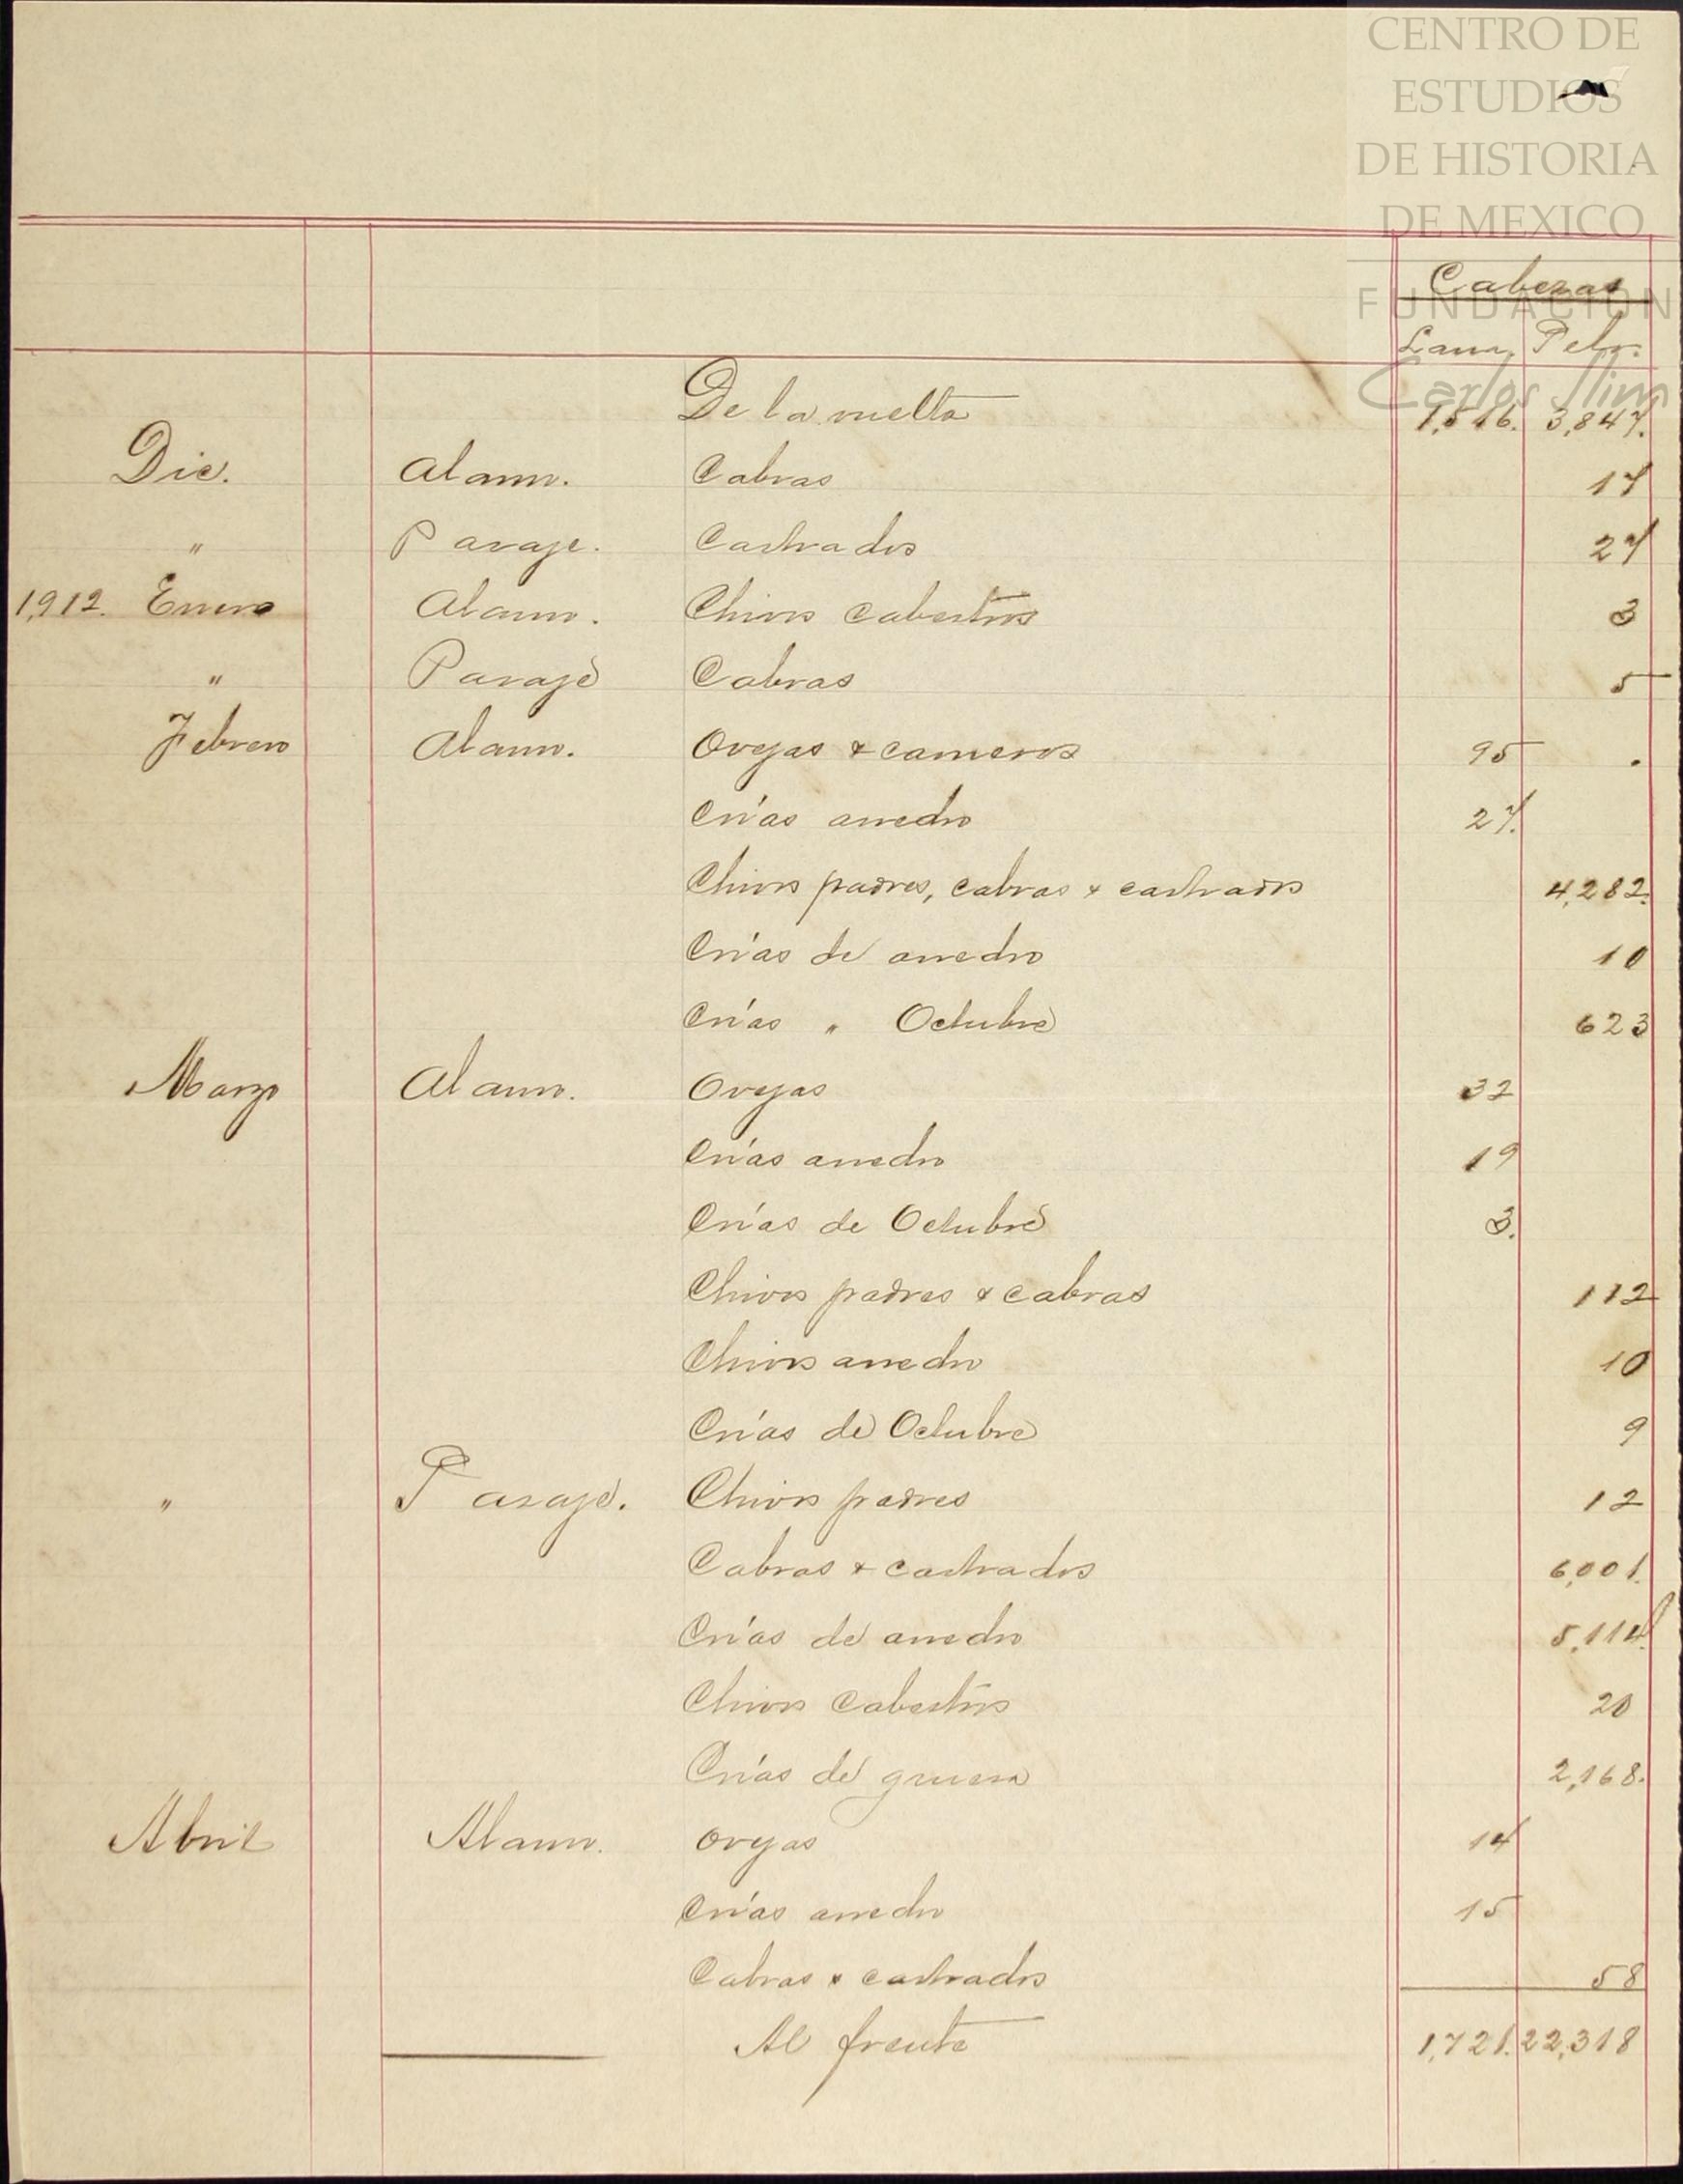 CENTRO DE
ESTUDIOS
DE HISTORIA
DE MEXICO
FUNDACION
Carlos Slim
Cabezas
Lana. Pelo.
De la vuelta 1,516. 3,847.
Dic. Alamo. Cabras 17
" Paraje. Castrados 27
1,912. Enero Alamo. Chivos cabestros 3
" Paraje Cabras 5
Febrero Alamo. Ovejas & carneros 95 .
Crías arredro 27.
Chivos padres, cabras & castrados 4,282.
Crías de arredro 10
Crías " Octubre 623
Marzo Alamo. Ovejas 32
Crías arredro 19
Crías de Octubre 3.
Chivos padres & cabras 112
Chivos arredro 10
Crías de Octubre 9
" Paraje. Chivos padres 12
Cabras & castrados 6,001.
Crías de arredro 5,114.
Chivos Cabestros 20
Crías de gruesa 2,168.
Abril Alamo. Ovejas 14
Crías arredro 15
Cabras & castrados 58
Al frente 1,721. 22,318